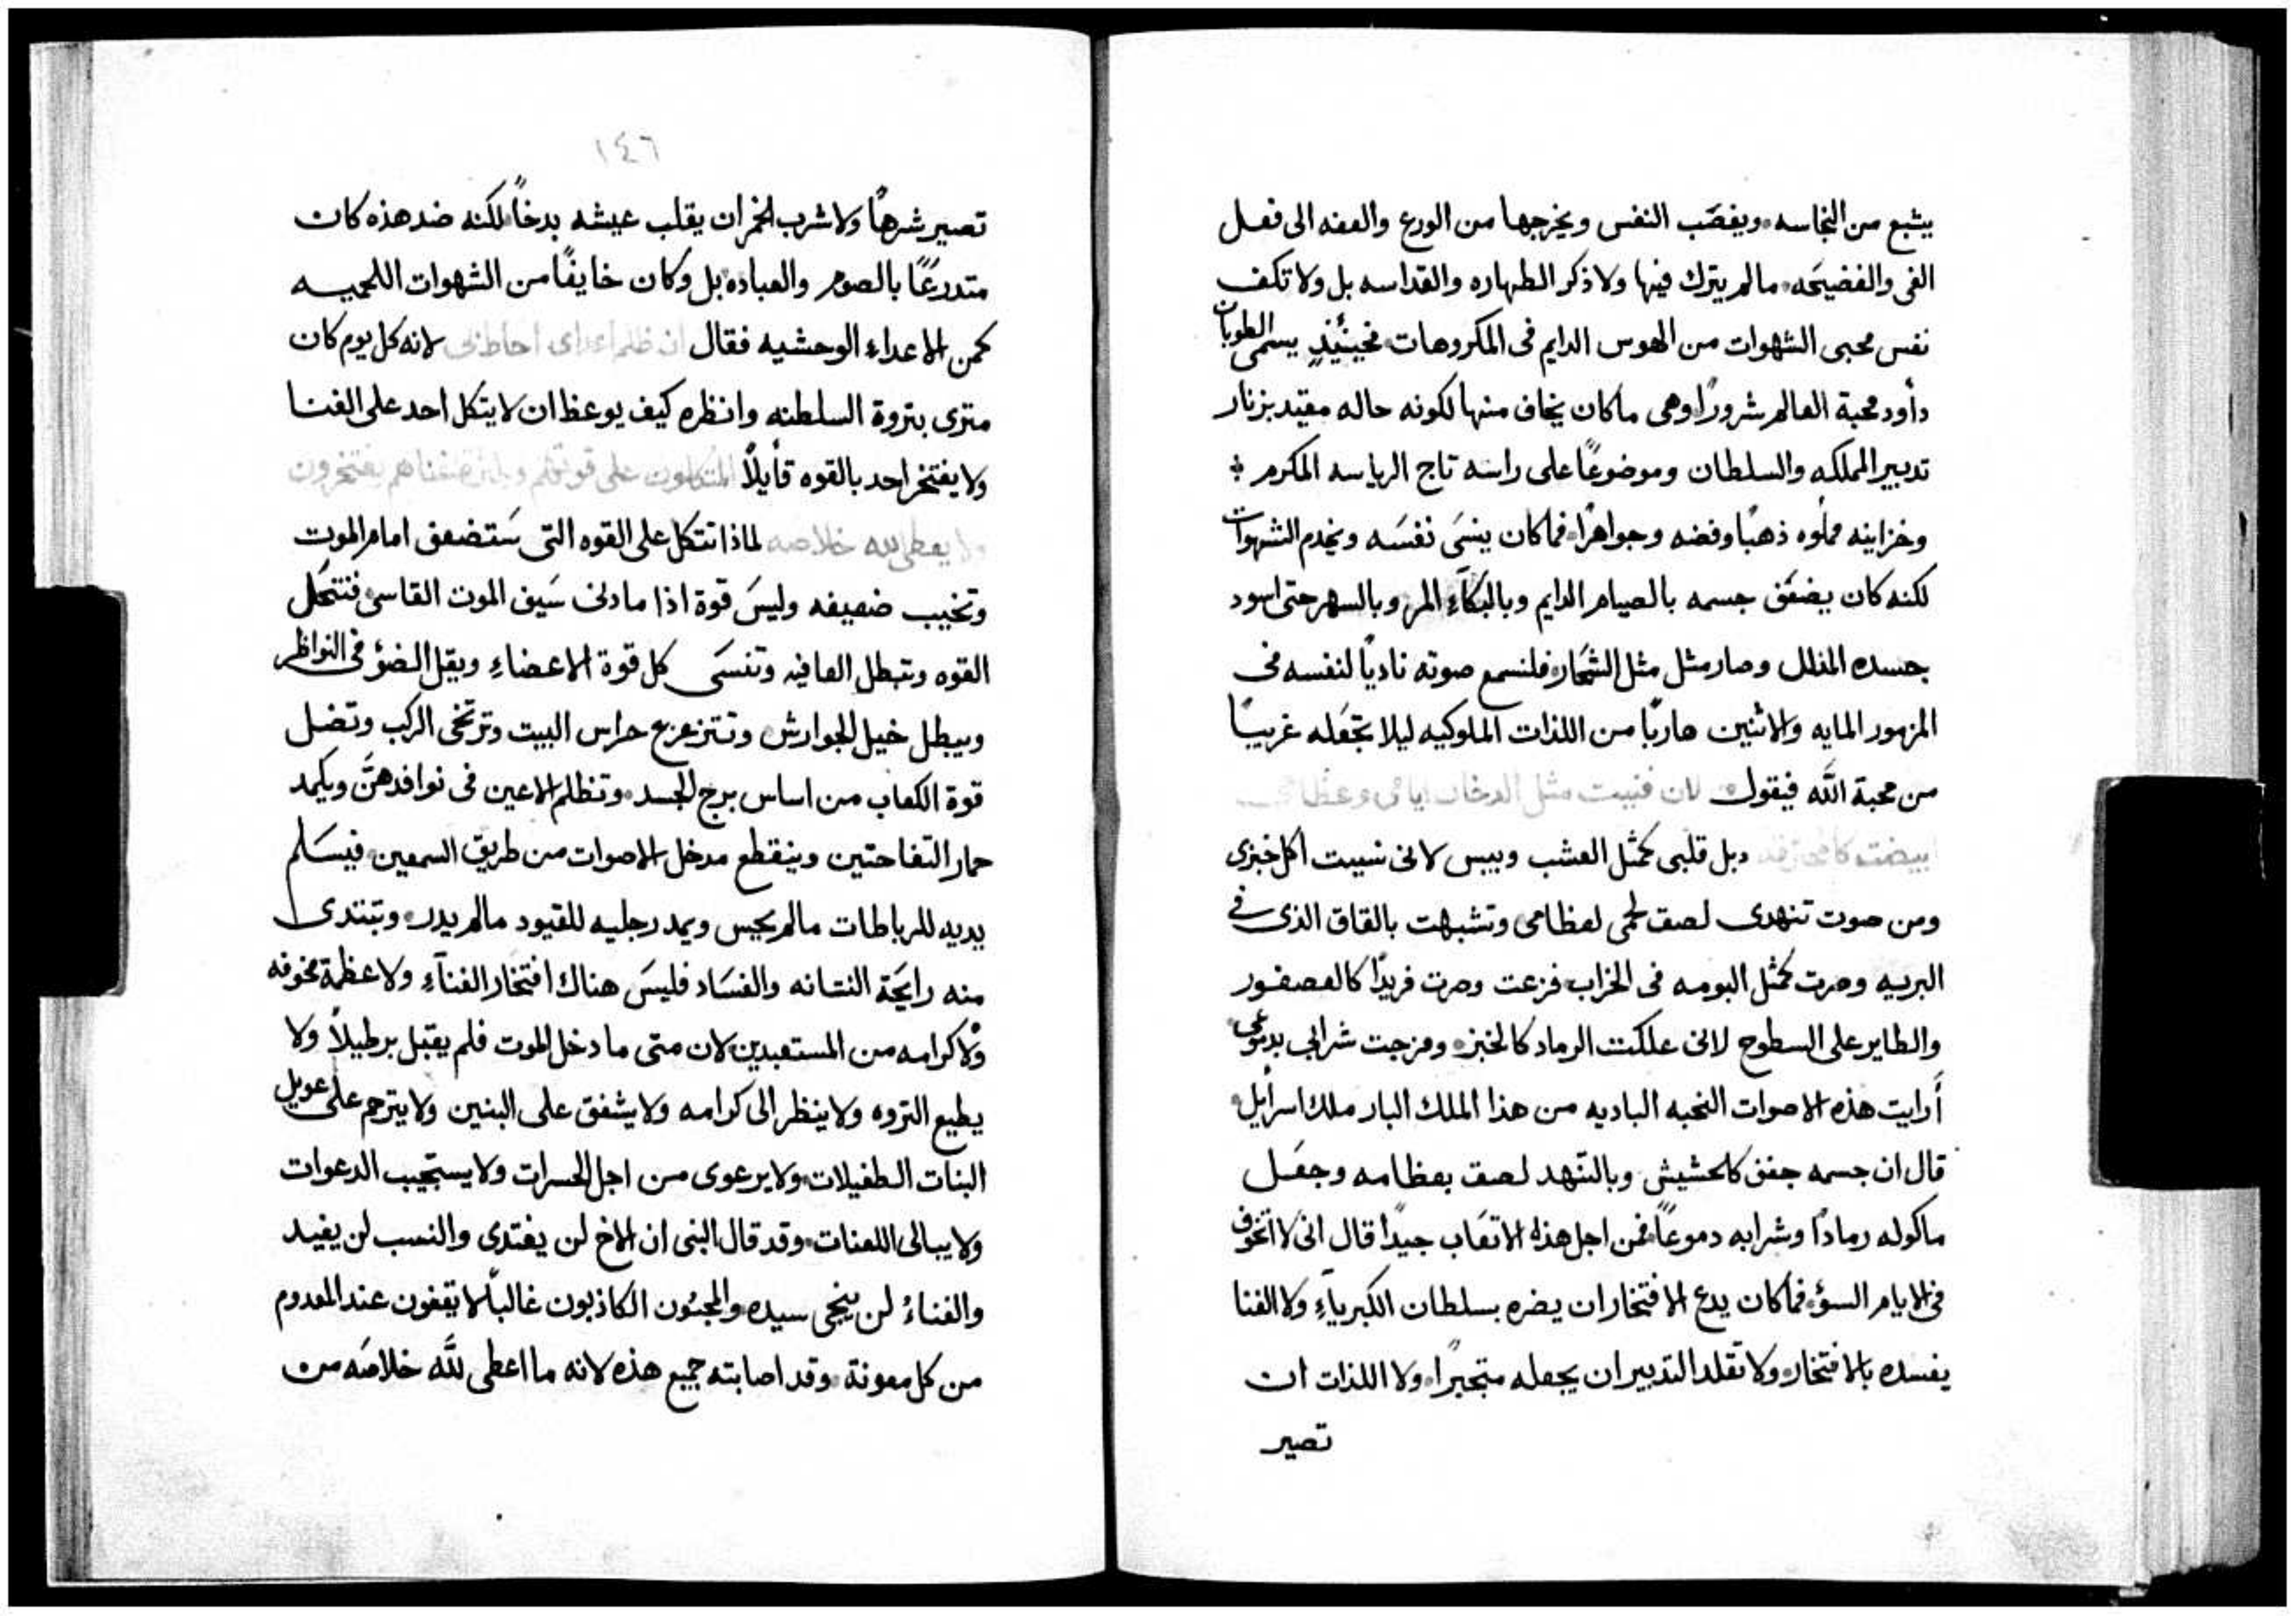 يشبع من النجاسه ويغصَب النفس ويخرجها من الورع والعفه الى فعل
الغى والفضيحَه مالم يترك فيها ولا ذكر الطهاره والقداسه بل ولا تكف
نفس محبى الشهوات من الهوس الدايم فى المكروهات فحينئذٍ يسمى الطوبان
دأود محبة العالم شرورًا وهى ماكان يخاف منها لكونه حاله مقيد بزنار
تدبير المملكه والسلطان وموضوعًا على راسَه تاج الرياسه المكرم
وخزاينه مملوه ذهبًا وفضه وجواهرًا فما كان ينسَى نفسَه ويخدم الشهوات
لكنه كان يضعَف جسمه بالصيام الدايم وبالبكآءِ المر وبالسهر حتى اسود
جسده المذلل وصار مثل مثل الشحَار فلنسمع صوته ناديًا لنفسه فى
المزمور المايه والاثنين هاربًا من اللذات الملوكيه ليلا تجعَله غريبًا
من محبة اللَّه فيقول لان فنيت مثل الدخان ايامى وعظامى
ابيضت كالمحترقه دبل قلبى كمثل العشب ويبس لانى نسيت اكل خبزى
ومن صوت تنهدى لصق لحمى لعظامى وتشبهت بالقاق الذى فى
البريه وصرت كمثل البومه فى الخراب فزعت وصرت فريدًا كالعصفور
والطاير على السطوح لانى علكت الرماد كالخبز ومزجت شرابى بدموعى
أرايت هذه الاصوات النحبه الباديه من هذا الملك البار ملك اسرأيل
قال ان جسمه جفف كالحشيش وبالتنهد لصق بعظامه وجعَل
ماكوله رمادًا وشرابه دموعًا فمن اجل هذه الاتعَاب جيدًا قال انى لا اتخوف
فى الايام السؤ فما كان يدع الافتخار ان يضره بسلطان الكبرياءِ ولا الغنا
يفسده بالافتخار ولا تقلد التدبير ان يجعله متجبرًا ولا اللذات ان
تصير
١٤٦
تصير شرهًا ولا شرب الخمر ان يقلب عيشه بدخًا لكنه ضد هذه كان
متدرعًا بالصوم والعباده بل وكان خايفًا من الشهوات اللحميه
كمن الاعداء الوحشيه فقال ان ظلم اعداى احاط بى لانه كل يوم كان
متزى بتروة السلطنه وانظره كيف يوعظ ان لا يتكل احد على الغنا
ولا يفتخر احد بالقوه قأيلاً المتكلون على قوتهم وبكثرة غناهم يفتخرون
ولا يعطى لله خلاصه لماذا نتكل على القوه التى سَتضعف امام الموت
وتخيب ضعيفه وليسَ قوة اذا ما دنى سَيف الموت القاسى فتنحَل
القوه وتبطل العافيه وتنسَى كل قوة الاعضاءِ ويقل الضؤ فى النواظر
ويبطل خيل الجوارش وتتزعزع حراس البيت وترتخى الركب وتضل
قوة الكعاب من اساس برج الجسد وتظلم الاعين فى نوافدهنَّ ويكمد
حمار التفاحتين وينقطع مدخل الاصوات من طريق السمعين فيسَلم
يديه للرباطات مالم يحس ويمد رجليه للقيود مالم يدر وتبتدى
منه رايحَة النتانه والفسَاد فليسَ هناك افتخار الغنآءِ ولا عظمة مخوفه
ولا كرامه من المستعبدين لان متى ما دخل الموت فلم يقبل برطيلاً ولا
يطيع التروه ولا ينظر الى كرامه ولا يشفق على البنين ولا يترحم على عويل
البنات الطفيلات ولا يرعوى من اجل الحسرات ولا يستجيب الدعوات
ولا يبالى اللعنات وقد قال النبى ان الاخ لن يفتدى والنسب لن يفيد
والغناءُ لن ينجى سيده والمحبون الكاذبون غالبًا لا يقفون عند المعدوم
من كل معونة وقد اصابته جميع هذه لانه ما اعطى للَّه خلاصَه من